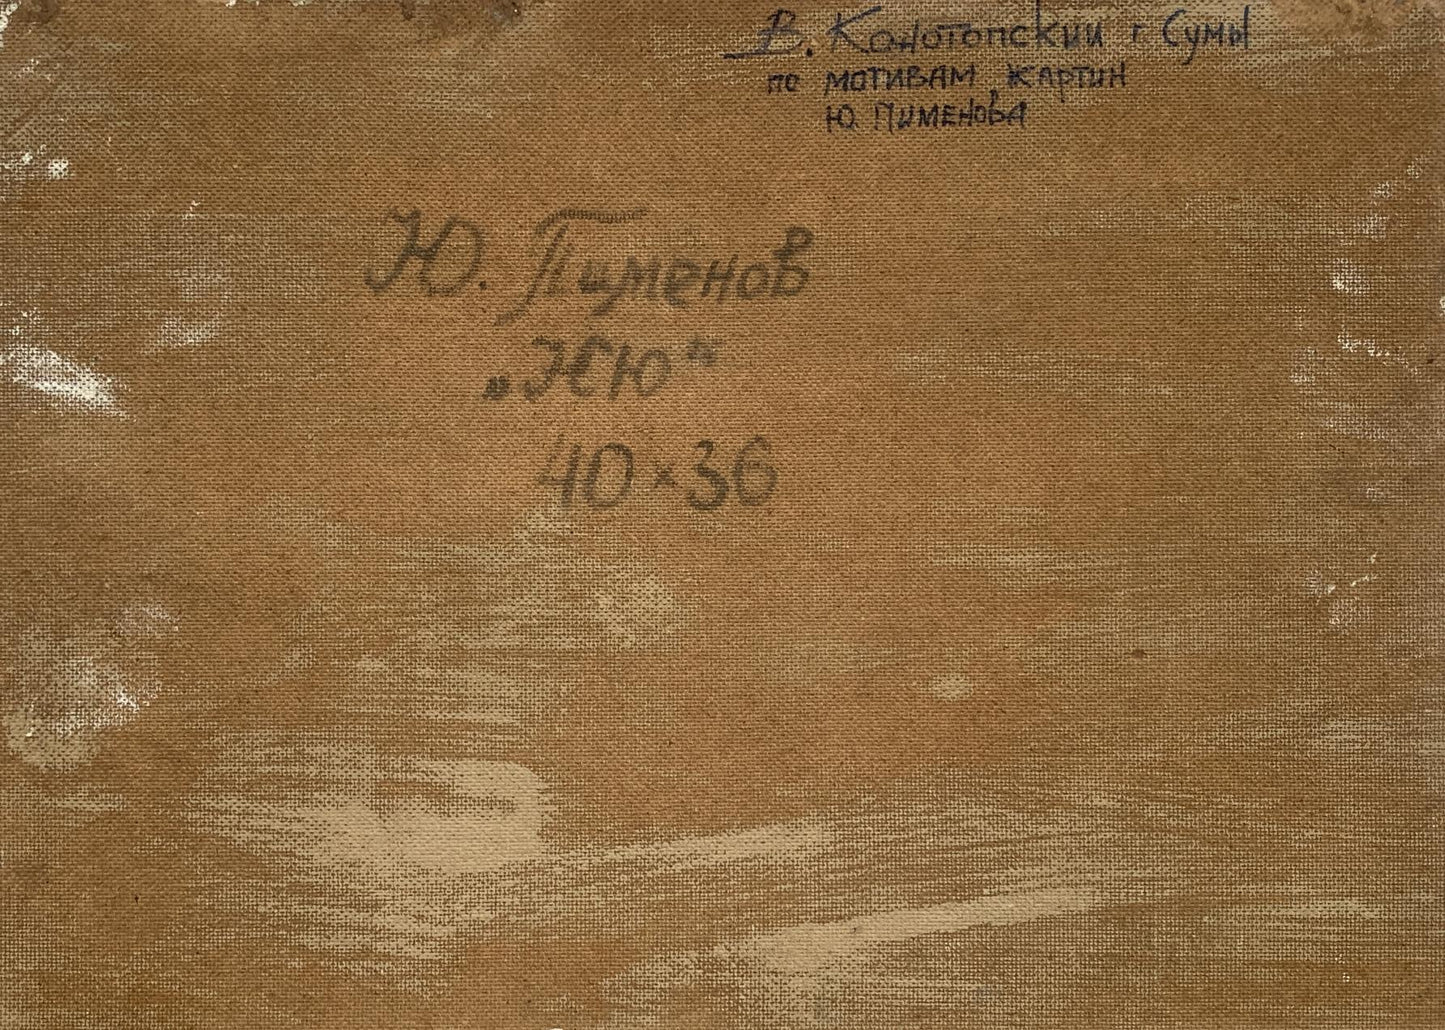 В. Конотопский г Сумы
по мотивам картин
Ю. Пименова
Ю. Пименов
„Ню“
40×36